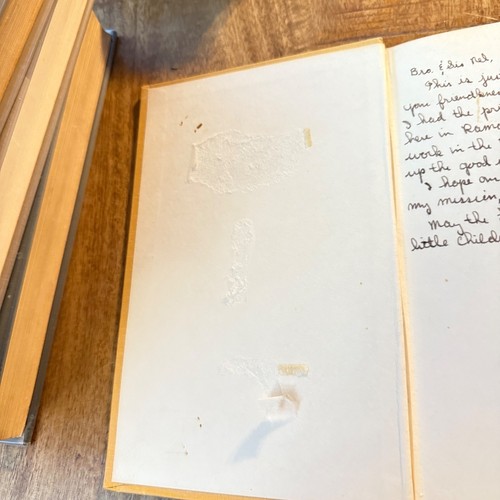 Bro. & Sis Nel,
This is jus
you friendlines
I had the pr
here in Ramo
work in the
up the good w
I hope an
my mission
May the
little childr